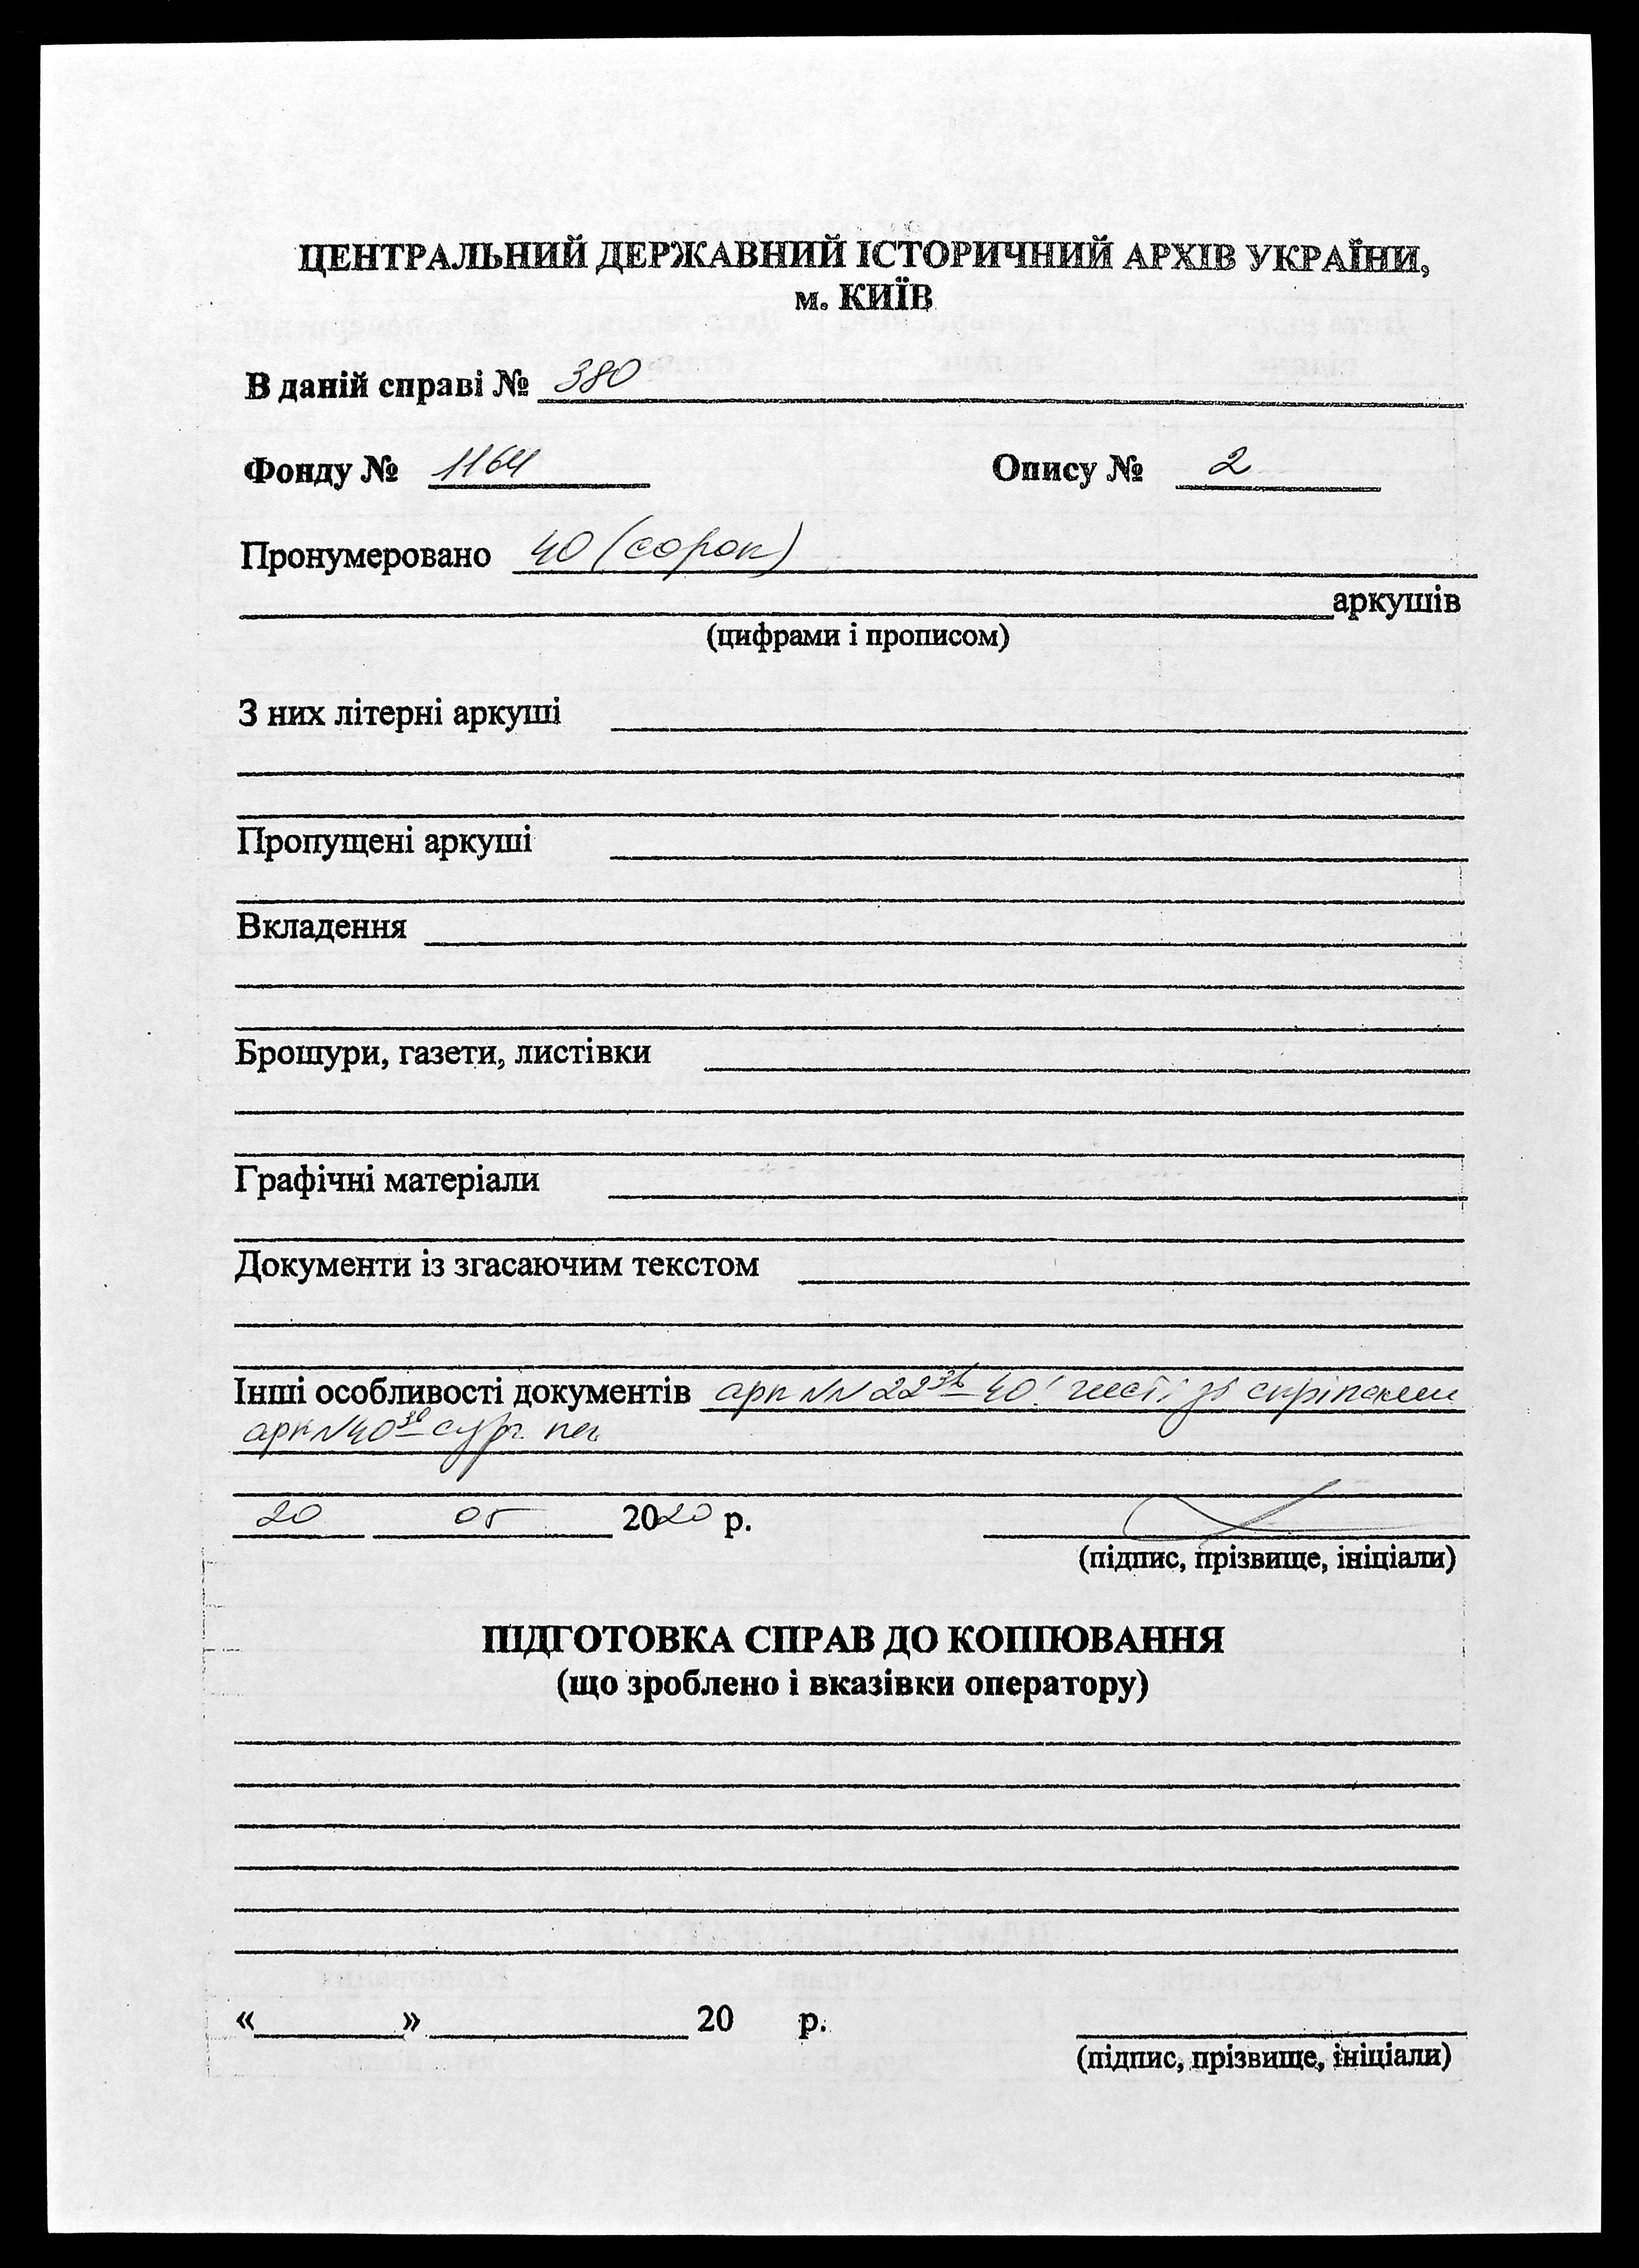 ЦЕНТРАЛЬНИЙ ДЕРЖАВНИЙ ІСТОРИЧНИЙ АРХІВ УКРАЇНИ,
м. КИЇВ
В даній справі № 380
Фонду № 1164 Опису № 2
Пронумеровано 40 (сорок)
аркушів
(цифрами і прописом)
З них літерні аркуші
Пропущені аркуші
Вкладення
Брошури, газети, листівки
Графічні матеріали
Документи із згасаючим текстом
Інші особливості документів арк №№ 22зв 40 зі скріпами
арк №40зв сург. печ
20 05 2020 р.
(підпис, прізвище, ініціали)
ПІДГОТОВКА СПРАВ ДО КОПІЮВАННЯ
(що зроблено і вказівки оператору)
«     »      20   р.
(підпис, прізвище, ініціали)